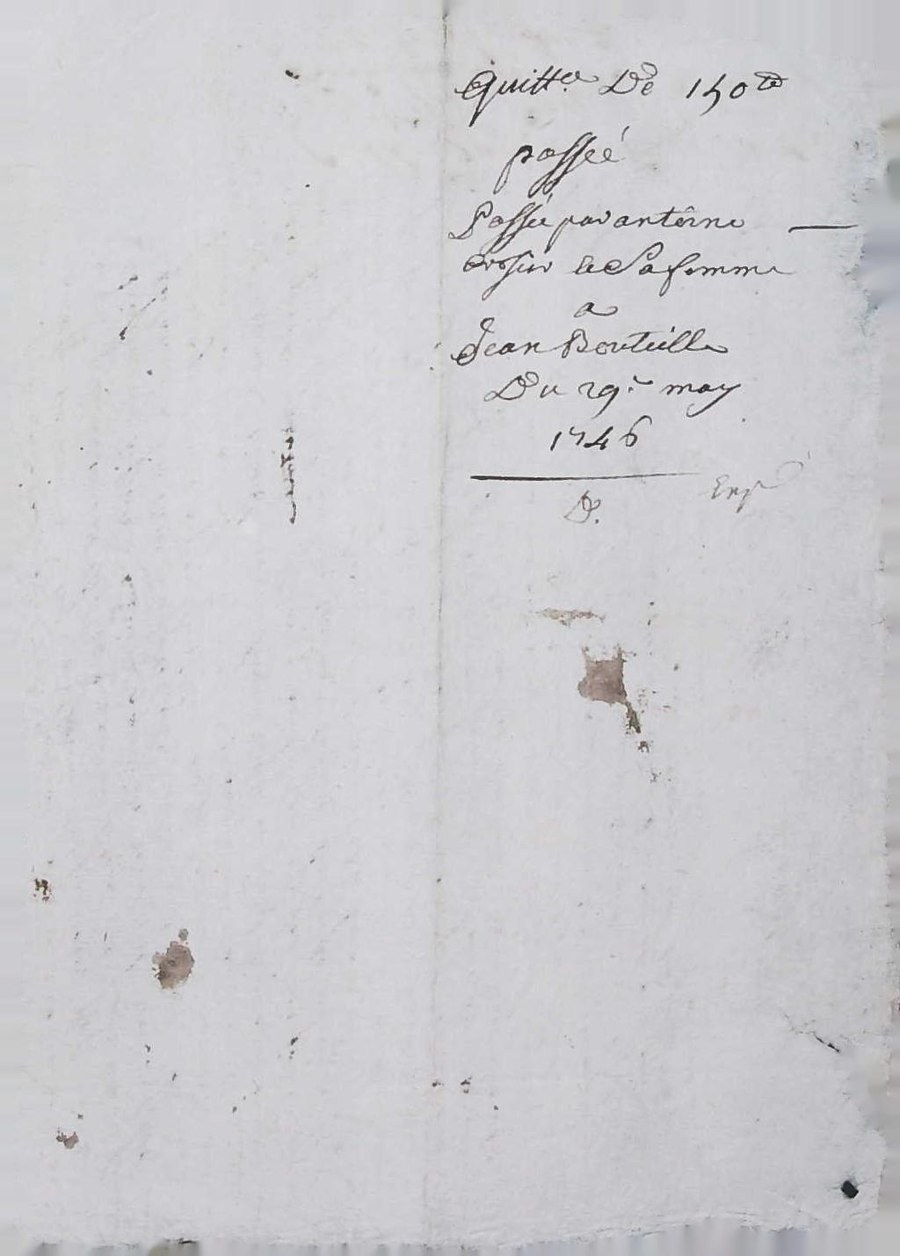 Quitt.ce De 150 tt
passeé
Passée par antoine
et Sa femme
a
Jean Bouteille
Du 29.e may
1746
D.